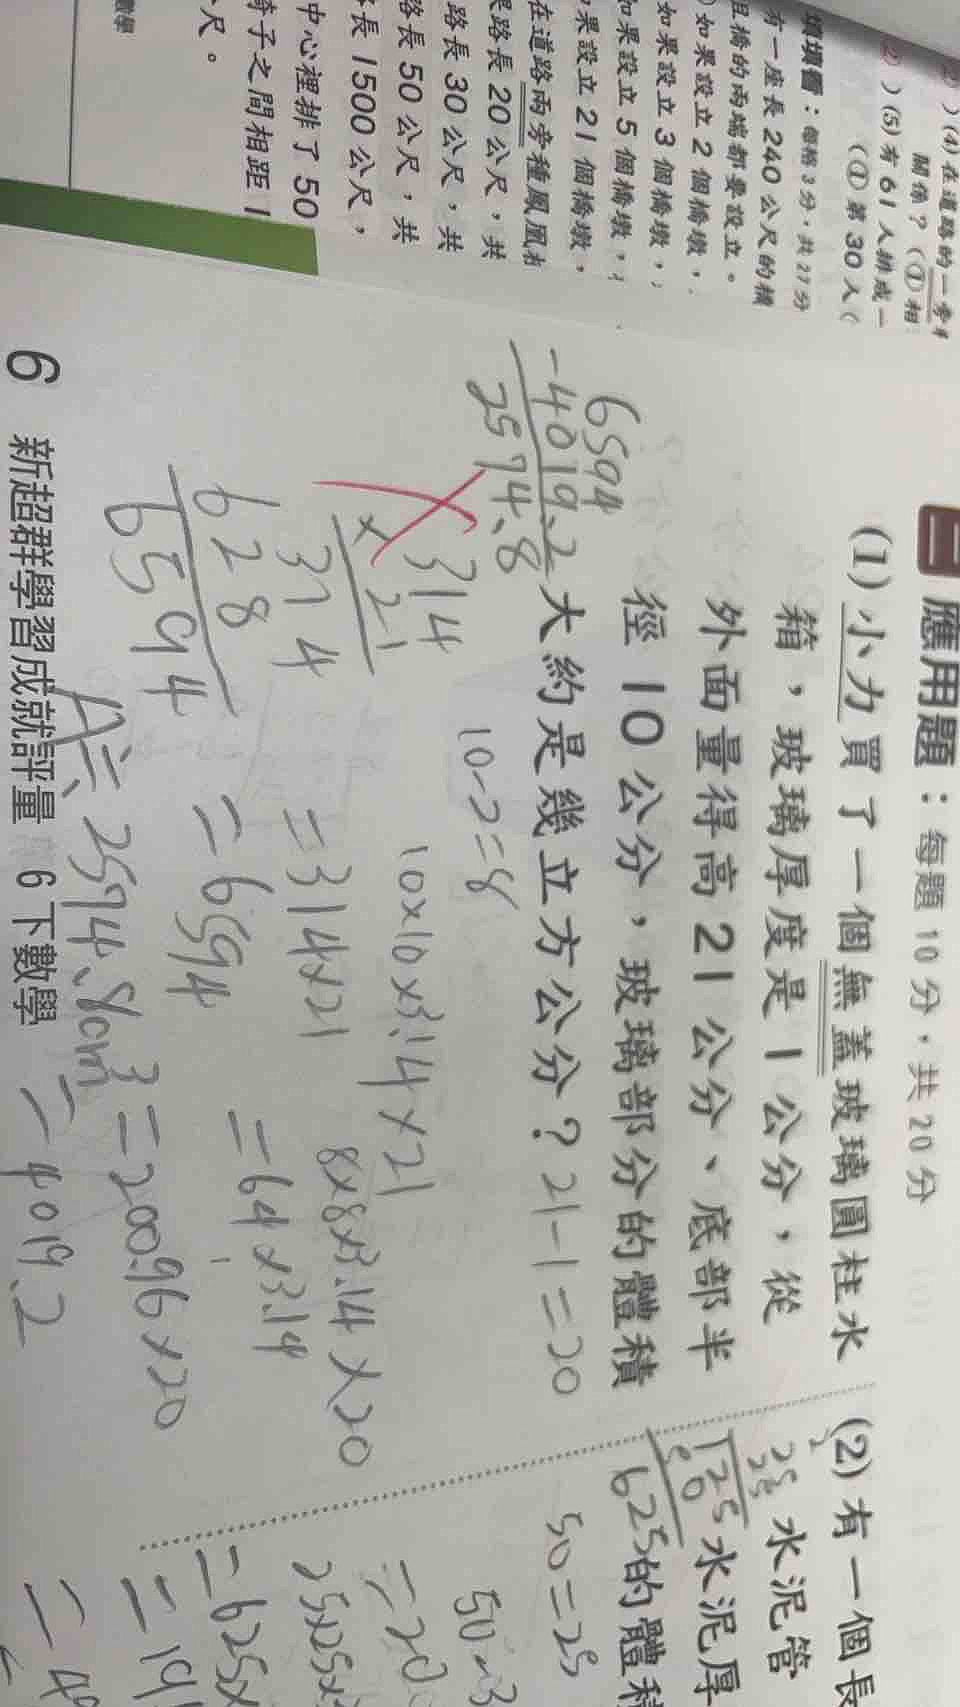 (4)在道路的一旁
關係?(①相
)(5)有61人排成一
(①第30人(
填填看：每格3分，共27分
有一座長240公尺的橋
且橋的兩端都要設立。
如果設立2個橋墩，
如果設立3個橋墩，
如果設立5個橋墩，
果設立21個橋墩，
在道路兩旁種鳳凰
路長20公尺，共
路長30公尺，共
路長50公尺，共
長1500公尺，
中心裡排了50
椅子之間相距1
尺。
數學
二 應用題：每題10分，共20分
(1)小力買了一個無蓋玻璃圓柱水
箱，玻璃厚度是1公分，從
外面量得高21公分、底部半
徑10公分，玻璃部分的體積
大約是幾立方公分？21-1=20
6594
-4019.2
2574.8
314
×21
314
628
6594
10-2=8
10×10×3.14×21
=314×21
=6594
8×8×3.14×20
=64×3.14
=200.96×20
=4019.2
A:2574.8cm³
(2)有一個長
水泥管
水泥厚
的體積
25
125
50
625
50=25
50-3
=20
25×25×
=625×
=19
=4
6 新超群學習成就評量 6下數學